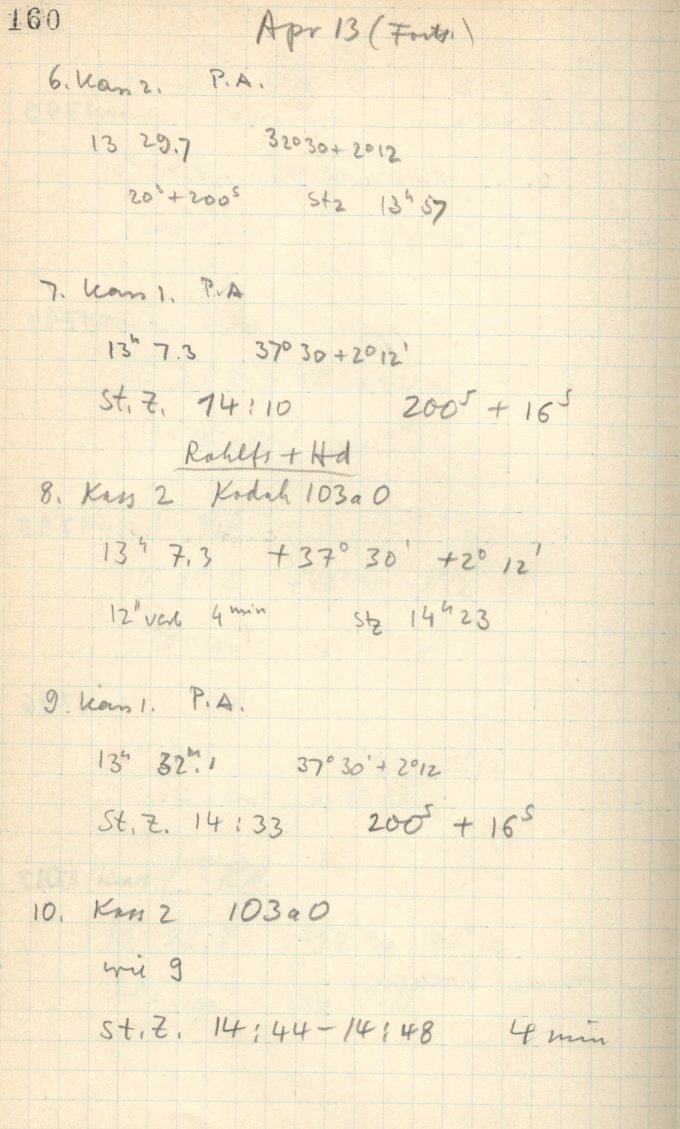 160
Apr 13 (Forts.)
6. Kass 2. P.A.
13 29.7 32°30 + 2°12
20ˢ + 200ˢ Stz 13ʰ 57
7. Kass 1. P.A
13ʰ 7.3 37° 30 + 2°12'
St. Z. 14:10 200ˢ + 16ˢ
Rahlfs + Hd
8. Kass 2 Kodak 103a0
13ʰ 7.3 +37° 30' +2° 12'
12" verb 4 min Stz 14ʰ 23
9. Kass 1. P.A.
13ʰ 32ᵐ.1 37° 30' + 2°12
St. Z. 14:33 200ˢ + 16ˢ
10. Kass 2 103a0
wie 9
St. Z. 14:44 – 14:48 4 min